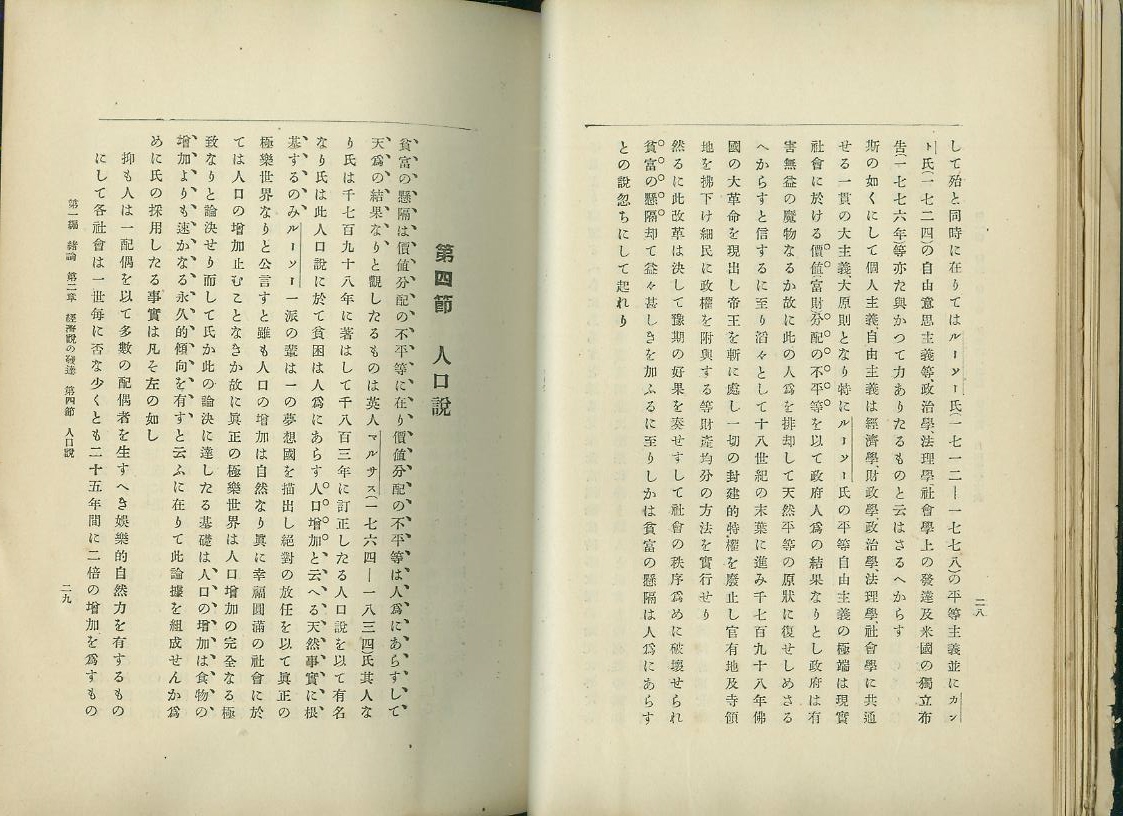 して殆と同時に在りてはルーソー氏(一七一二―一七七八)の平等主義並にカン
ト氏(一七二四)の自由意思主義等、政治學、法理學、社會學上の發達及米國の獨立布
告(一七七六年)等亦た與かつて力ありたるものと云はさるへからす
斯の如くにして個人主義、自由主義は經濟學、財政學政治學法理學社會學に共通
せる一貫の大主義、大原則となり特にルーソー氏の平等自由主義の極端は現實
社會に於ける價値(富財)分配の不平等を以て政府人爲の結果なりとし政府は有
害無益の魔物なるか故に此の人爲を排却して天然平等の原狀に復せしめさる
へからすと信するに至り滔々として十八世紀の末葉に進み千七百九十八年佛
國の大革命を現出し帝王を斬に處し一切の封建的特權を廢止し官有地及寺領
地を拂下け細民に政權を附與する等財產均分の方法を實行せり
然るに此改革は決して豫期の好果を奏せすして社會の秩序爲めに破壞せられ
貧富の懸隔却て益々甚しきを加ふるに至りしかは貧富の懸隔は人爲にあらす
との說忽ちにして起れり
二八
第四節 人口說
貧富の懸隔は價値分配の不平等に在り價値分配の不平等は人爲にあらすして
天爲の結果なりと觀したるものは英人マルサス(一七六四―一八三四)氏其人な
り氏は千七百九十八年に著はして千八百三年に訂正したる人口說を以て有名
なり氏は此人口說に於て貧困は人爲にあらす人口增加と云へる天然事實に根
基するのみルーソー一派の輩は一の夢想國を描出し絕對の放任を以て眞正の
極樂世界なりと公言すと雖も人口の增加は自然なり眞に幸福圓滿の社會に於
ては人口の增加止むことなきか故に眞正の極樂世界は人口增加の完全なる極
致なりと論決せり而して氏か此の論決に達したる基礎は人口の增加は食物の
增加よりも速かなる永久的傾向を有すと云ふに在りて此論據を組成せんか爲
めに氏の採用したる事實は凡そ左の如し
抑も人は一配偶を以て多數の配偶者を生すへき娛樂的自然力を有するもの
にして各社會は一世每に否な少くとも二十五年間に二倍の增加を爲すもの
第一編 緖論 第二章 經濟說の發達 第四節 人口說
二九